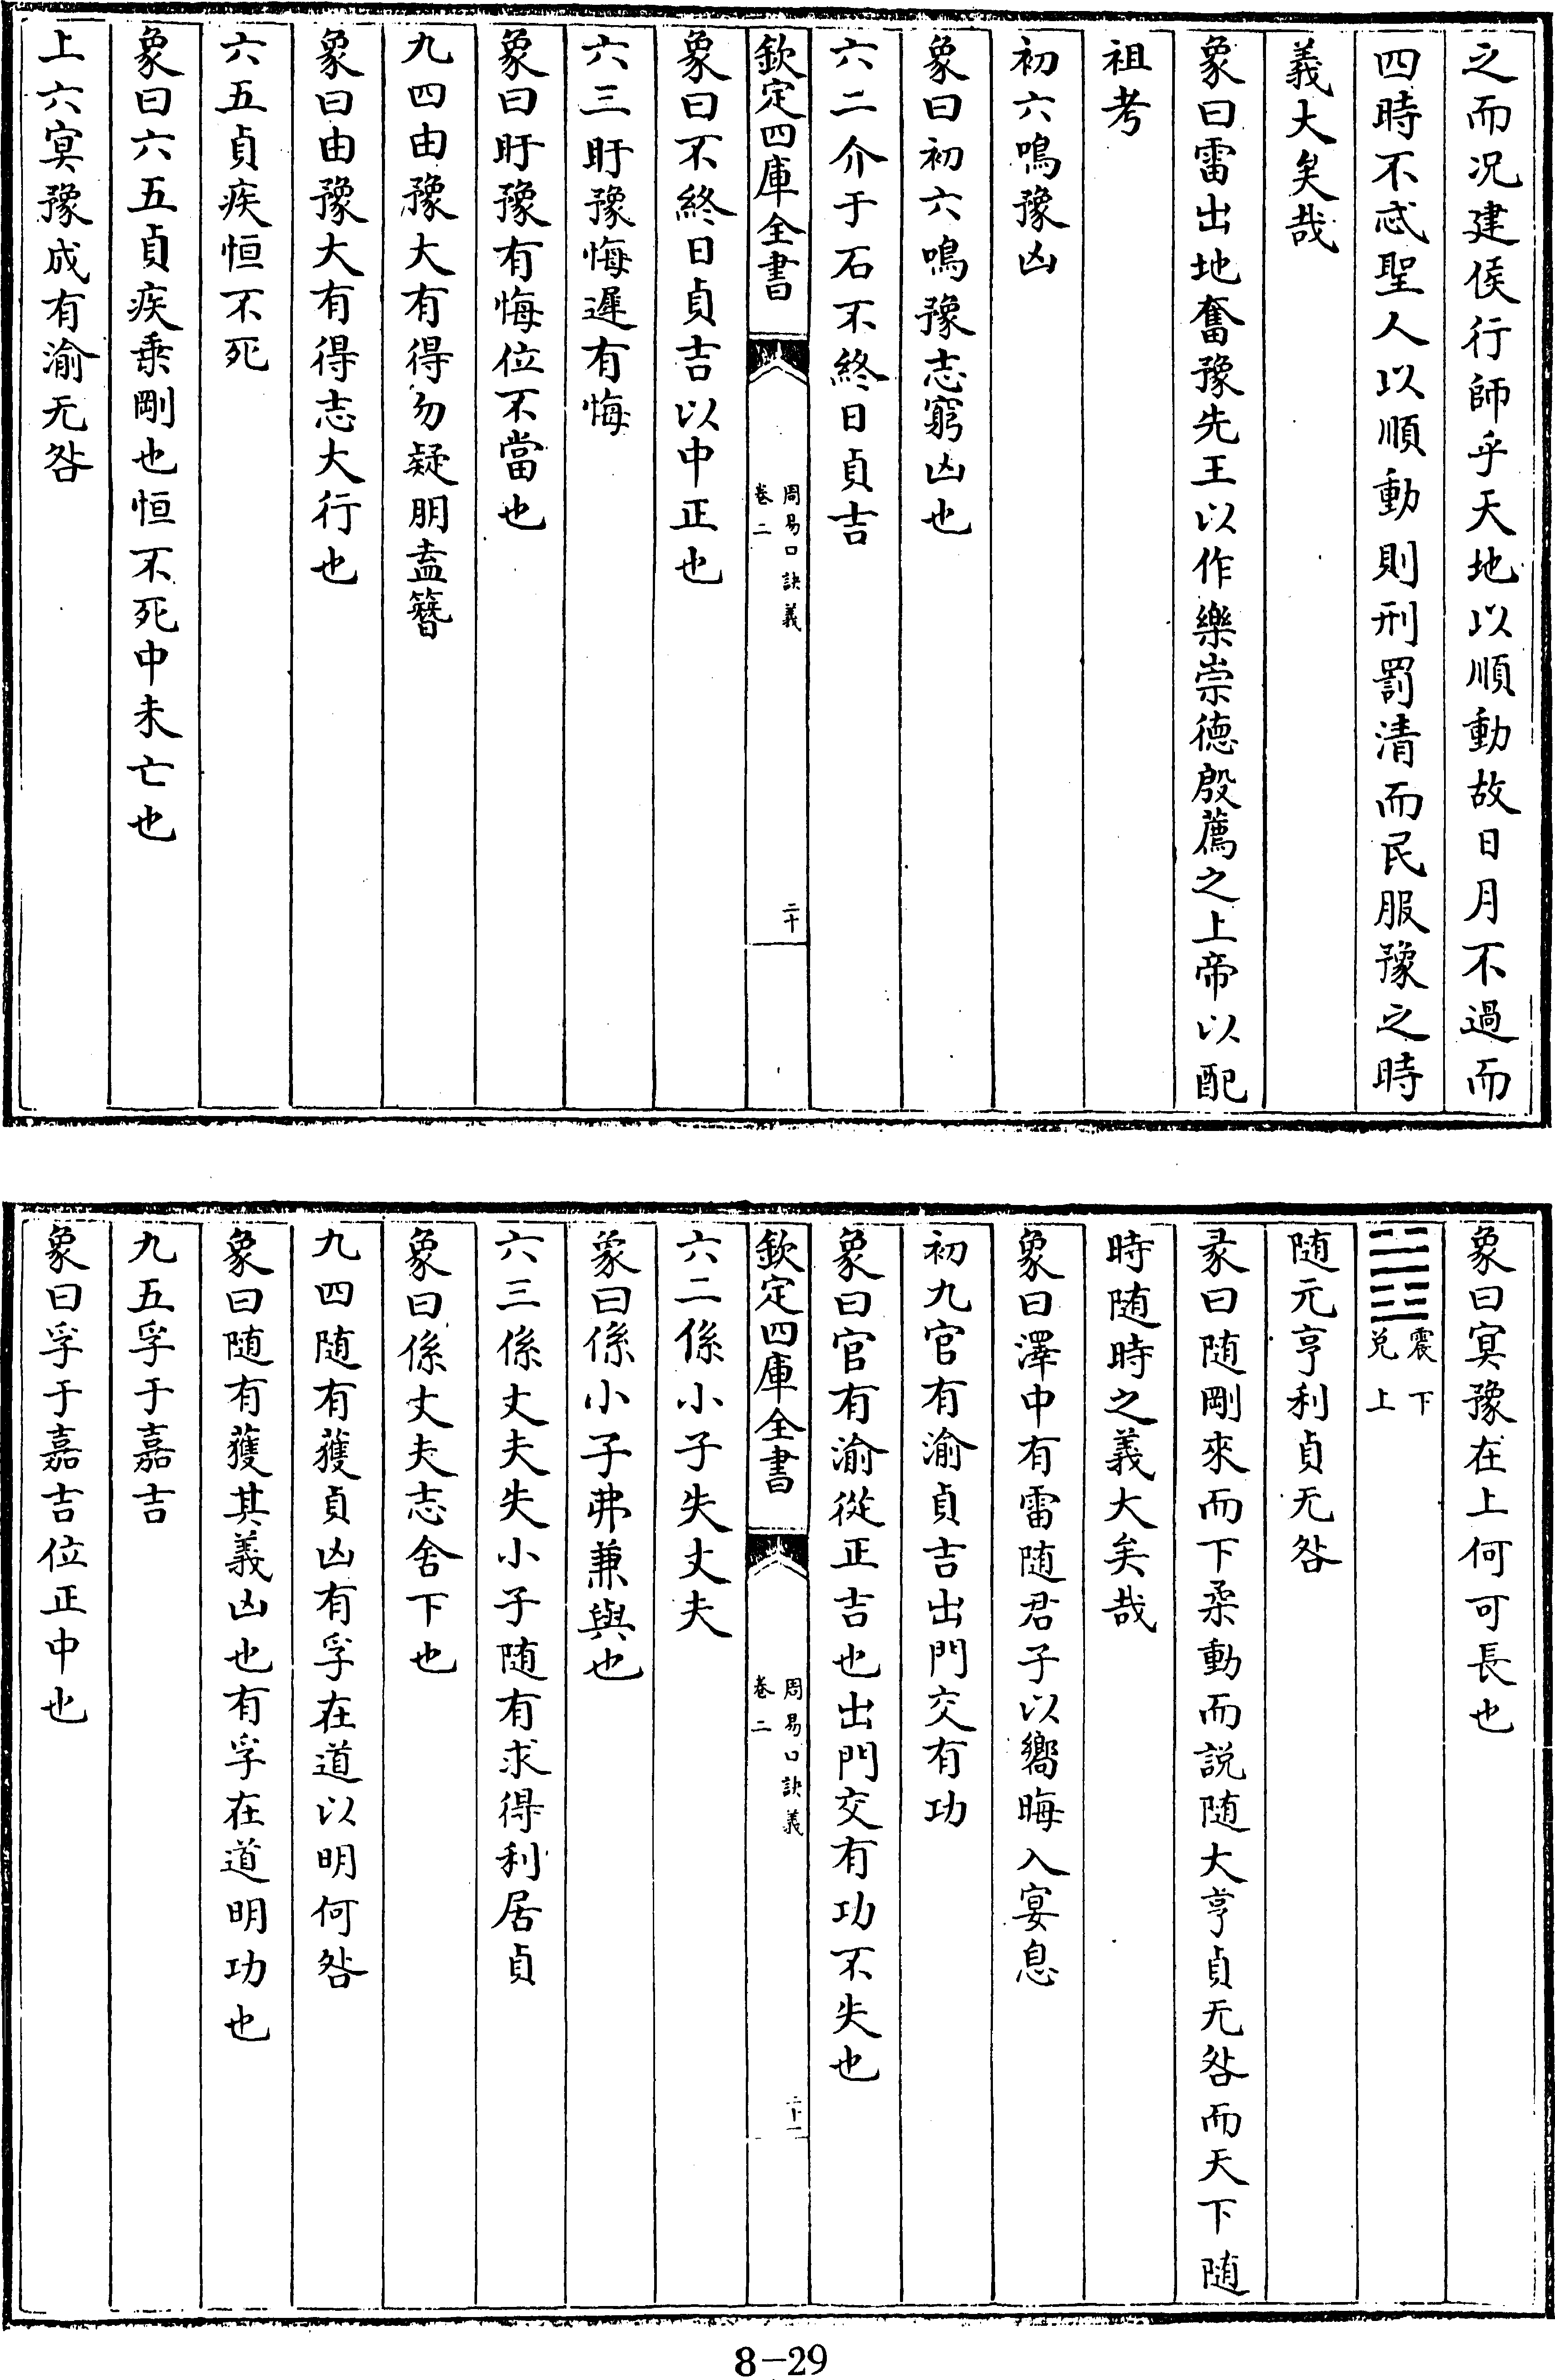 之而況建侯行師乎天地以順動故日月不過而
四時不忒聖人以順動則刑罰清而民服豫之時
義大矣哉
象曰雷出地奮豫先王以作樂崇德殷薦之上帝以配
祖考
初六鳴豫凶
象曰初六鳴豫志窮凶也
六二介于石不終日貞吉
欽定四庫全書
周易口訣義
卷二
二十
象曰不終日貞吉以中正也
六三盱豫悔遲有悔
象曰盱豫有悔位不當也
九四由豫大有得勿疑朋盍簪
象曰由豫大有得志大行也
六五貞疾恒不死
象曰六五貞疾乗剛也恒不死中未亡也
上六冥豫成有渝无咎
象曰冥豫在上何可長也
䷐
震下
兌上
随元亨利貞无咎
彖曰随剛來而下柔動而説随大亨貞无咎而天下随
時随時之義大矣哉
象曰澤中有雷随君子以嚮晦入宴息
初九官有渝貞吉出門交有功
象曰官有渝從正吉也出門交有功不失也
欽定四庫全書
周易口訣義
卷二
二十一
六二係小子失丈夫
象曰係小子弗兼與也
六三係丈夫失小子随有求得利居貞
象曰係丈夫志舍下也
九四随有獲貞凶有孚在道以明何咎
象曰随有獲其義凶也有孚在道明功也
九五孚于嘉吉
象曰孚于嘉吉位正中也
8-29